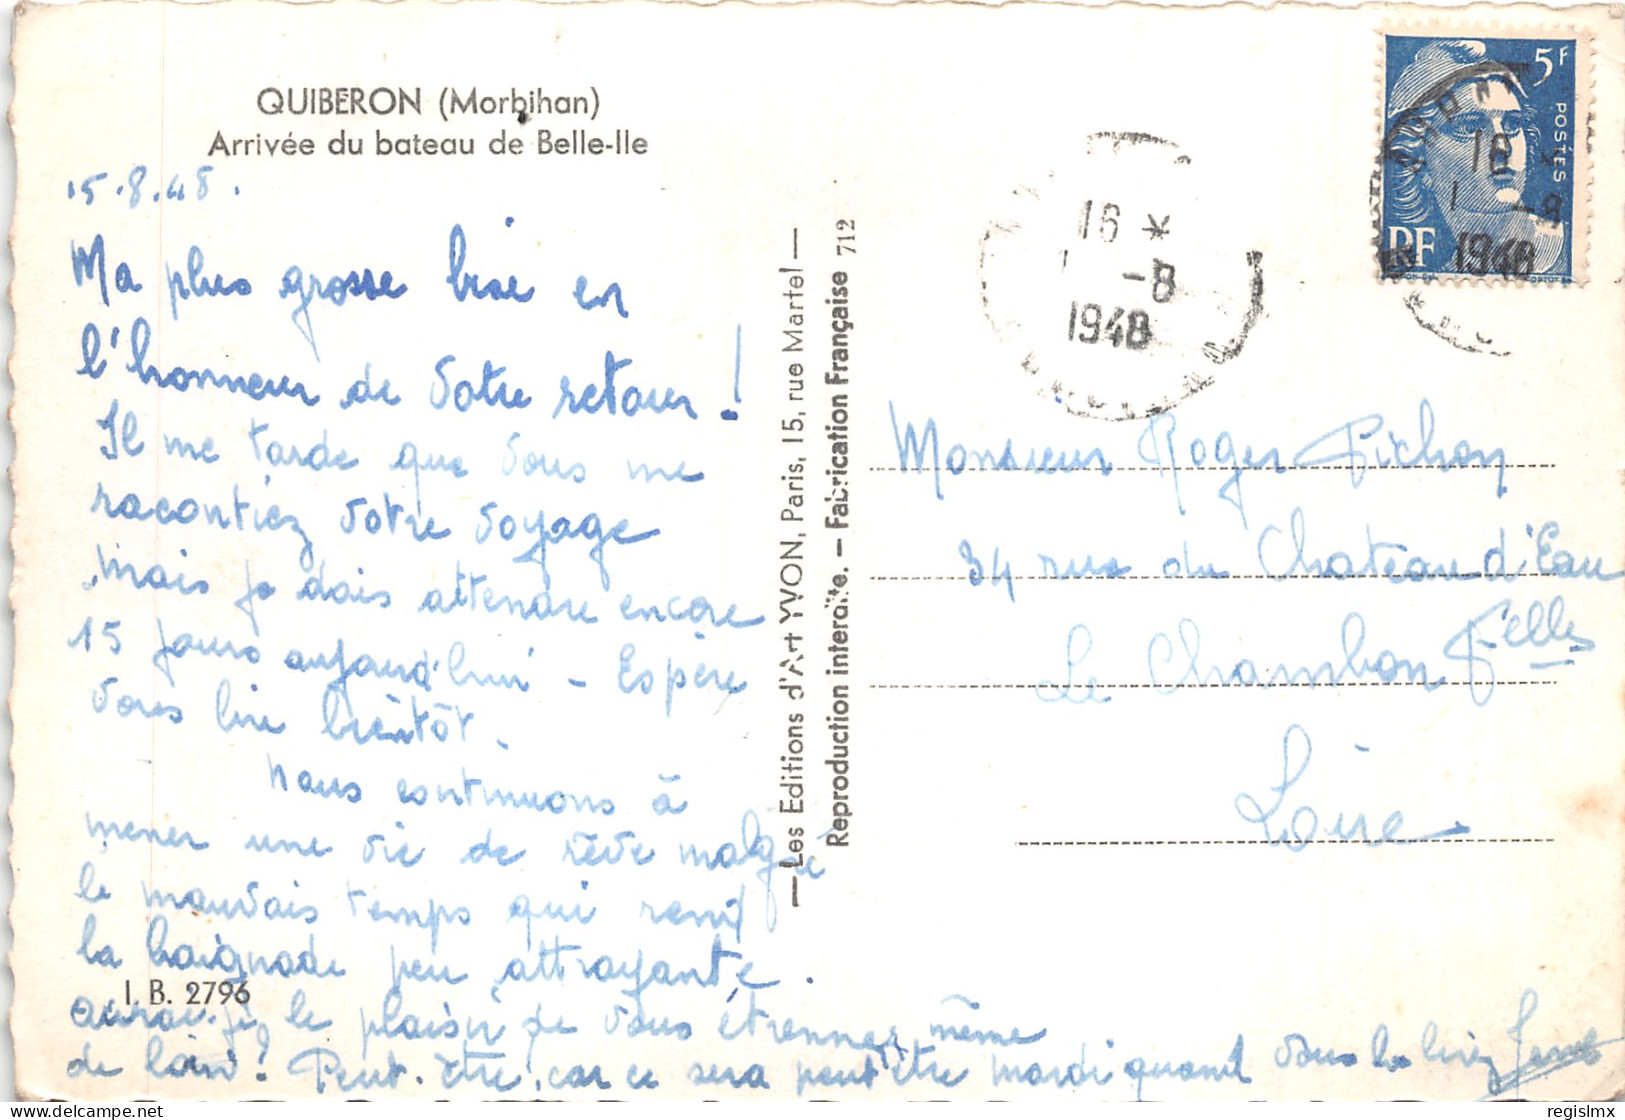 QUIBERON (Morbihan)
Arrivée du bateau de Belle-Ile
15.8.48.
Ma plus grosse bise en
l'honneur de votre retour !
Il me tarde que vous me
racontiez votre voyage
mais je dois attendre encore
15 jours aujourd'hui - Espère
vous lire bientôt.
Nous continuons à
mener une vie de rêve malgré
le mauvais temps qui rend
la baignade peu attrayante.
I. B. 2796
aurai-je le plaisir de vous étrenner même
de loin ? Peut-être, car ce sera peut être mardi quand vous la lirez
— Les Editions d'Art YVON, Paris, 15, rue Martel —
Reproduction interdite. — Fabrication Française 712
16 *
1 -8
1948
5F
POSTES
RF
18 *
1 -8
1948
Monsieur Roger Pichon
34 rue du Chateau d'Eau
Le Chambon Felles
Loire
© regislmx
delcampe.net